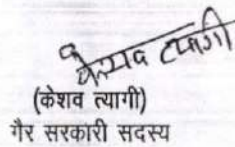 केशव त्यागी
(केशव त्यागी)
गैर सरकारी सदस्य